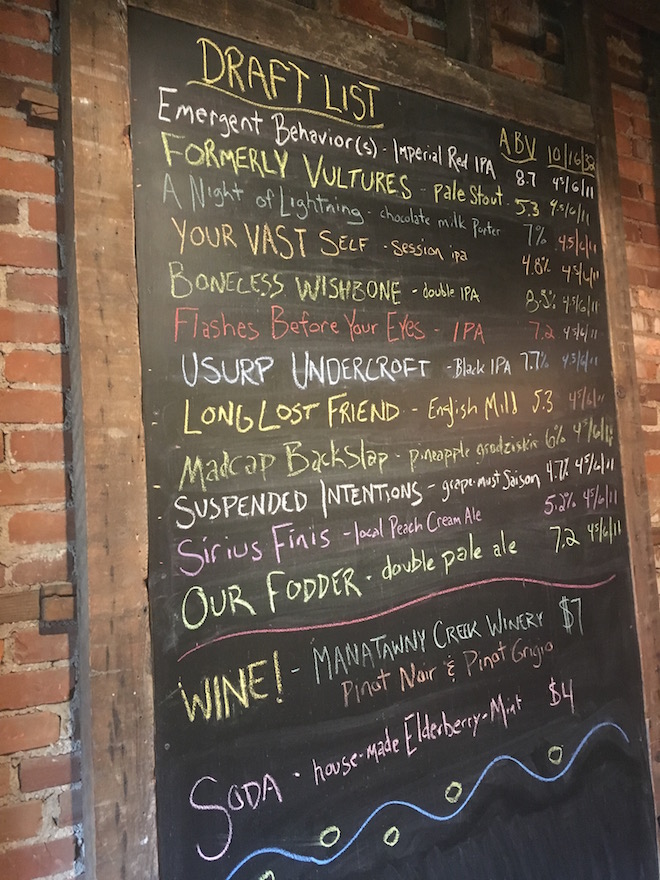 DRAFT LIST
ABV 10/16/32
Emergent Behavior(s) - Imperial Red IPA 8.7 4.5/6/11
FORMERLY VULTURES - pale Stout - 5.3 4.5/6/11
A Night of Lightning - chocolate milk Porter 7% 4.5/6/11
YOUR VAST SELF - Session ipa 4.8% 4.5/6/11
BONELESS WISHBONE - double IPA 8.5% 4.5/6/11
Flashes Before Your Eyes - IPA 7.2 4.5/6/11
USURP UNDERCROFT - Black IPA 7.7% 4.5/6/11
LONG LOST FRIEND - English Mild 5.3 4.5/6/11
MADCAP BACKSLAP - pineapple grodziskie 6% 4.5/6/11
SUSPENDED INTENTIONS - grape-must Saison 4.7% 4.5/6/11
Sirius Finis - local Peach Cream Ale 5.2% 4.5/6/11
OUR FODDER - double pale ale 7.2 4.5/6/11
WINE! - MANATAWNY CREEK WINERY $7
Pinot Noir & Pinot Grigio
SODA - house-made Elderberry-Mint $4